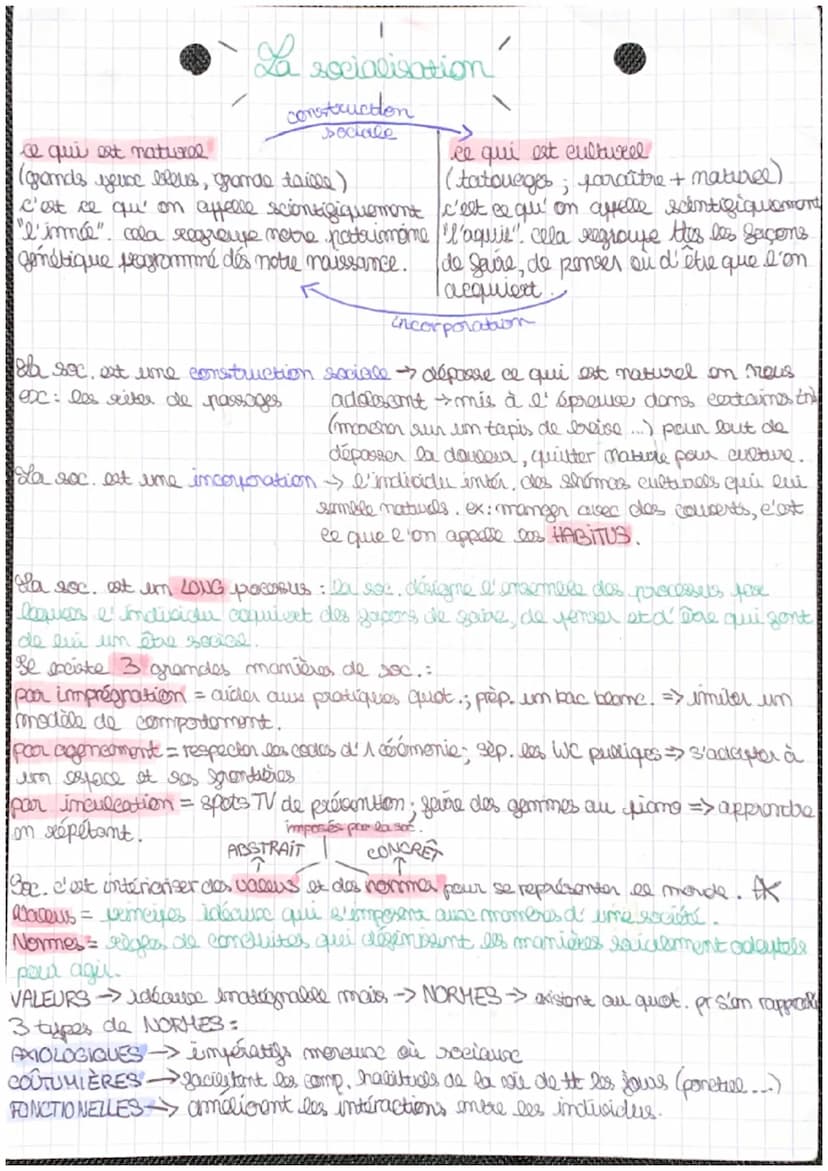 La socialisation
construction
sociale
ce qui est naturel
(grands yeux bleus, grande taille)
c'est ce qu'on appelle scientifiquement
"l'inné". cela regroupe notre patrimoine
génétique programmé dès notre naissance.
ce qui est culturel
(tatouages ; paraître + naturel)
c'est ce qu'on appelle scientifiquement
"l'aquis". cela regroupe ttes les façons
de faire, de penser où d'être que l'on
acquiert.
incorporation
La soc. est une construction sociale → dépasse ce qui est naturel en nous
ex : les rites de passages adolescent → mis à l'épreuve dans certaines
(marcher sur un tapis de braise ...) pour but de
dépasser la douleur, quitter nature pour culture.
La soc. est une incorporation → l'individu intér. des shémas culturels qui lui
semble naturels. ex : manger avec des couverts, c'est
ce que l'on appelle les HABITUS.
La soc. est un LONG processus : la soc. désigne l'ensemble des processus par
lequels l'individu acquiert des façons de faire, de penser et d'être qui font
de lui un être social.
Il existe 3 grandes manières de soc. :
par imprégnation = aider aux pratiques quot. ; prép. un bac blanc. => imiter un
modèle de comportement.
par agencement = respecter les codes d'1 cérémonie ; sép. les WC publiques => s'adapter à
un espace et ses frontières
par inculcation = spots TV de prévention ; faire des gammes au piano => apprendre
en répétant.
imposés par la soc.
ABSTRAIT CONCRÊT
Soc. c'est intérioriser des valeurs et des normes pour se représenter le monde.
Valeurs = principes idéaux qui s'imposent aux membres d'une société.
Normes = règles de conduites qui définissent les manières socialement adoptés
pour agir.
VALEURS → idéaux inatégnable mais → NORMES → existent au quot. pr s'en
3 types de NORMES :
AXIOLOGIQUES → impératifs moraux où sociaux
COÛTUMIÈRES → facilitent les comp. habituels de la vie de tt les jours (ponctuel ...)
FONCTIONELLES → améliorent les intéractions entre les individus.